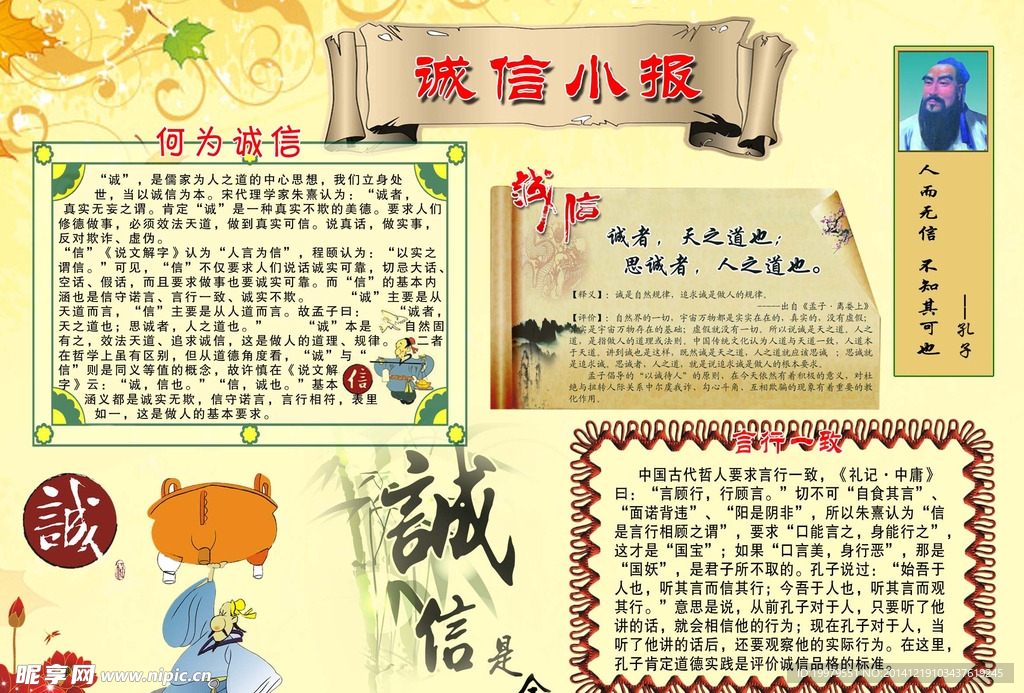 诚信小报
何为诚信
“诚”，是儒家为人之道的中心思想，我们立身处
世，当以诚信为本。宋代理学家朱熹认为：“诚者，
真实无妄之谓。肯定“诚”是一种真实不欺的美德。要求人们
修德做事，必须效法天道，做到真实可信。说真话，做实事，
反对欺诈、虚伪。
“信”《说文解字》认为“人言为信”，程颐认为：“以实之
谓信。”可见，“信”不仅要求人们说话诚实可靠，切忌大话、
空话、假话，而且要求做事也要诚实可靠。而“信”的基本内
涵也是信守诺言、言行一致、诚实不欺。 “诚”主要是从
天道而言，“信”主要是从人道而言。故孟子曰： “诚者，
天之道也；思诚者，人之道也。” “诚”本是 自然固
有之，效法天道、追求诚信，这是做人的道理、规律。 二者
在哲学上虽有区别，但从道德角度看，“诚”与“
信”则是同义等值的概念，故许慎在《说文解
字》云：“诚，信也。”“信，诚也。”基本
涵义都是诚实无欺，信守诺言，言行相符，表里
如一，这是做人的基本要求。
信
诚信
诚者，天之道也；
思诚者，人之道也。
【释义】：诚是自然规律，追求诚是做人的规律。
-----出自《孟子·离娄上》
【评价】：自然界的一切，宇宙万物都是实实在在的，真实的，没有虚假；
实是宇宙万物存在的基础；虚假就没有一切。所以说诚是天之道。人之
道，是指做人的道理或法则，中国传统文化认为人道与天道一致，人道本
于天道。讲到诚也是这样，既然诚是天之道，人之道就应该思诚；思诚就
是追求诚。思诚者，人之道，就是说追求诚是做人的根本要求。
孟子倡导的“以诚待人”的原则，在今天依然有着积极的意义，对杜
绝与扭转人际关系中尔虞我诈、勾心斗角、互相欺骗的现象有着重要的教
化作用。
人而无信 不知其可也
——孔子
言行一致
中国古代哲人要求言行一致，《礼记·中庸》
曰：“言顾行，行顾言。”切不可“自食其言”、
“面诺背违”、“阳是阴非”，所以朱熹认为“信
是言行相顾之谓”，要求“口能言之，身能行之”，
这才是“国宝”；如果“口言美，身行恶”，那是
“国妖”，是君子所不取的。孔子说过：“始吾于
人也，听其言而信其行；今吾于人也，听其言而观
其行。”意思是说，从前孔子对于人，只要听了他
讲的话，就会相信他的行为；现在孔子对于人，当
听了他讲的话后，还要观察他的实际行为。在这里，
孔子肯定道德实践是评价诚信品格的标准。
誠
誠
信
是
昵享网 www.nipic.cn
ID:19979551 NO:20141219103437619245